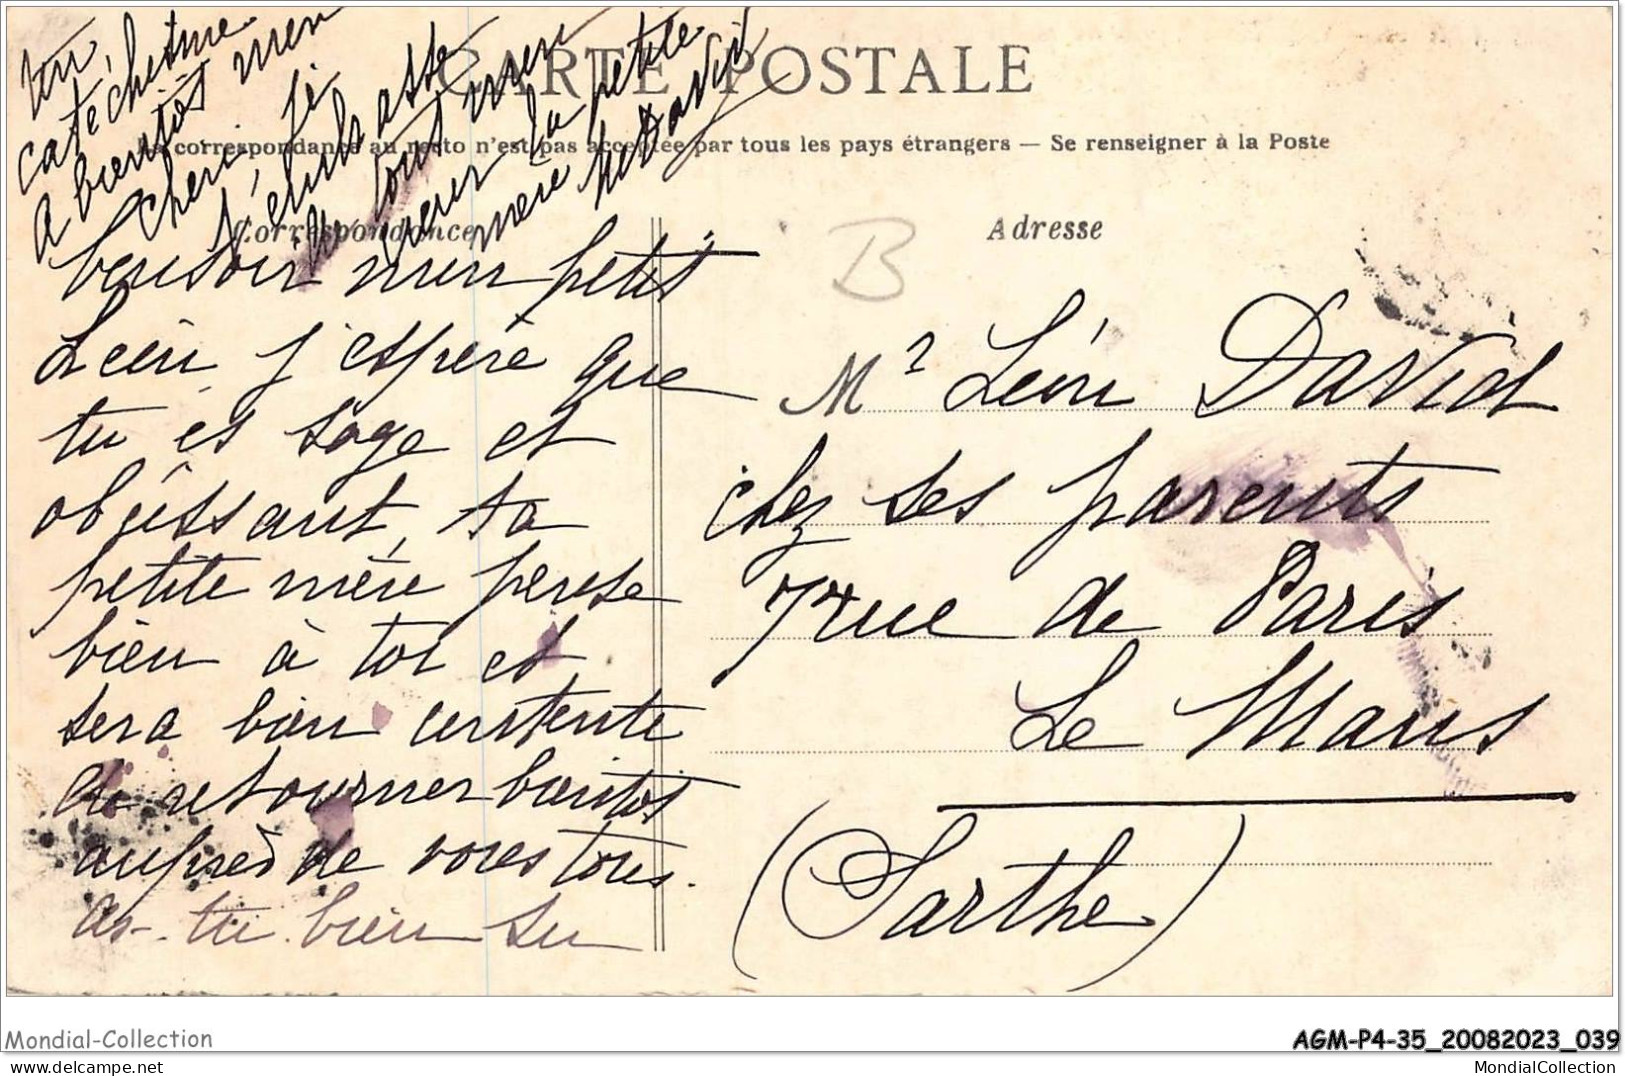 CARTE POSTALE
La correspondance au recto n'est pas acceptée par tous les pays étrangers — Se renseigner à la Poste
Correspondance
Adresse
B
bonsoir mon petit
Léon j'espère que
tu es sage et
obéissant, ta
petite mère pense
bien à toi et
sera bien contente
de retourner bientôt
auprès de vous tous.
As-tu bien su
ton
catéchisme
A bientôt mon
cheri, je
t'embrasse
tous mon
la petite
mère M David
Mr Léon David
chez ses parents
7 rue de Paris
Le Mans
(Sarthe)
Mondial-Collection
AGM-P4-35_20082023_039
MondialCollection